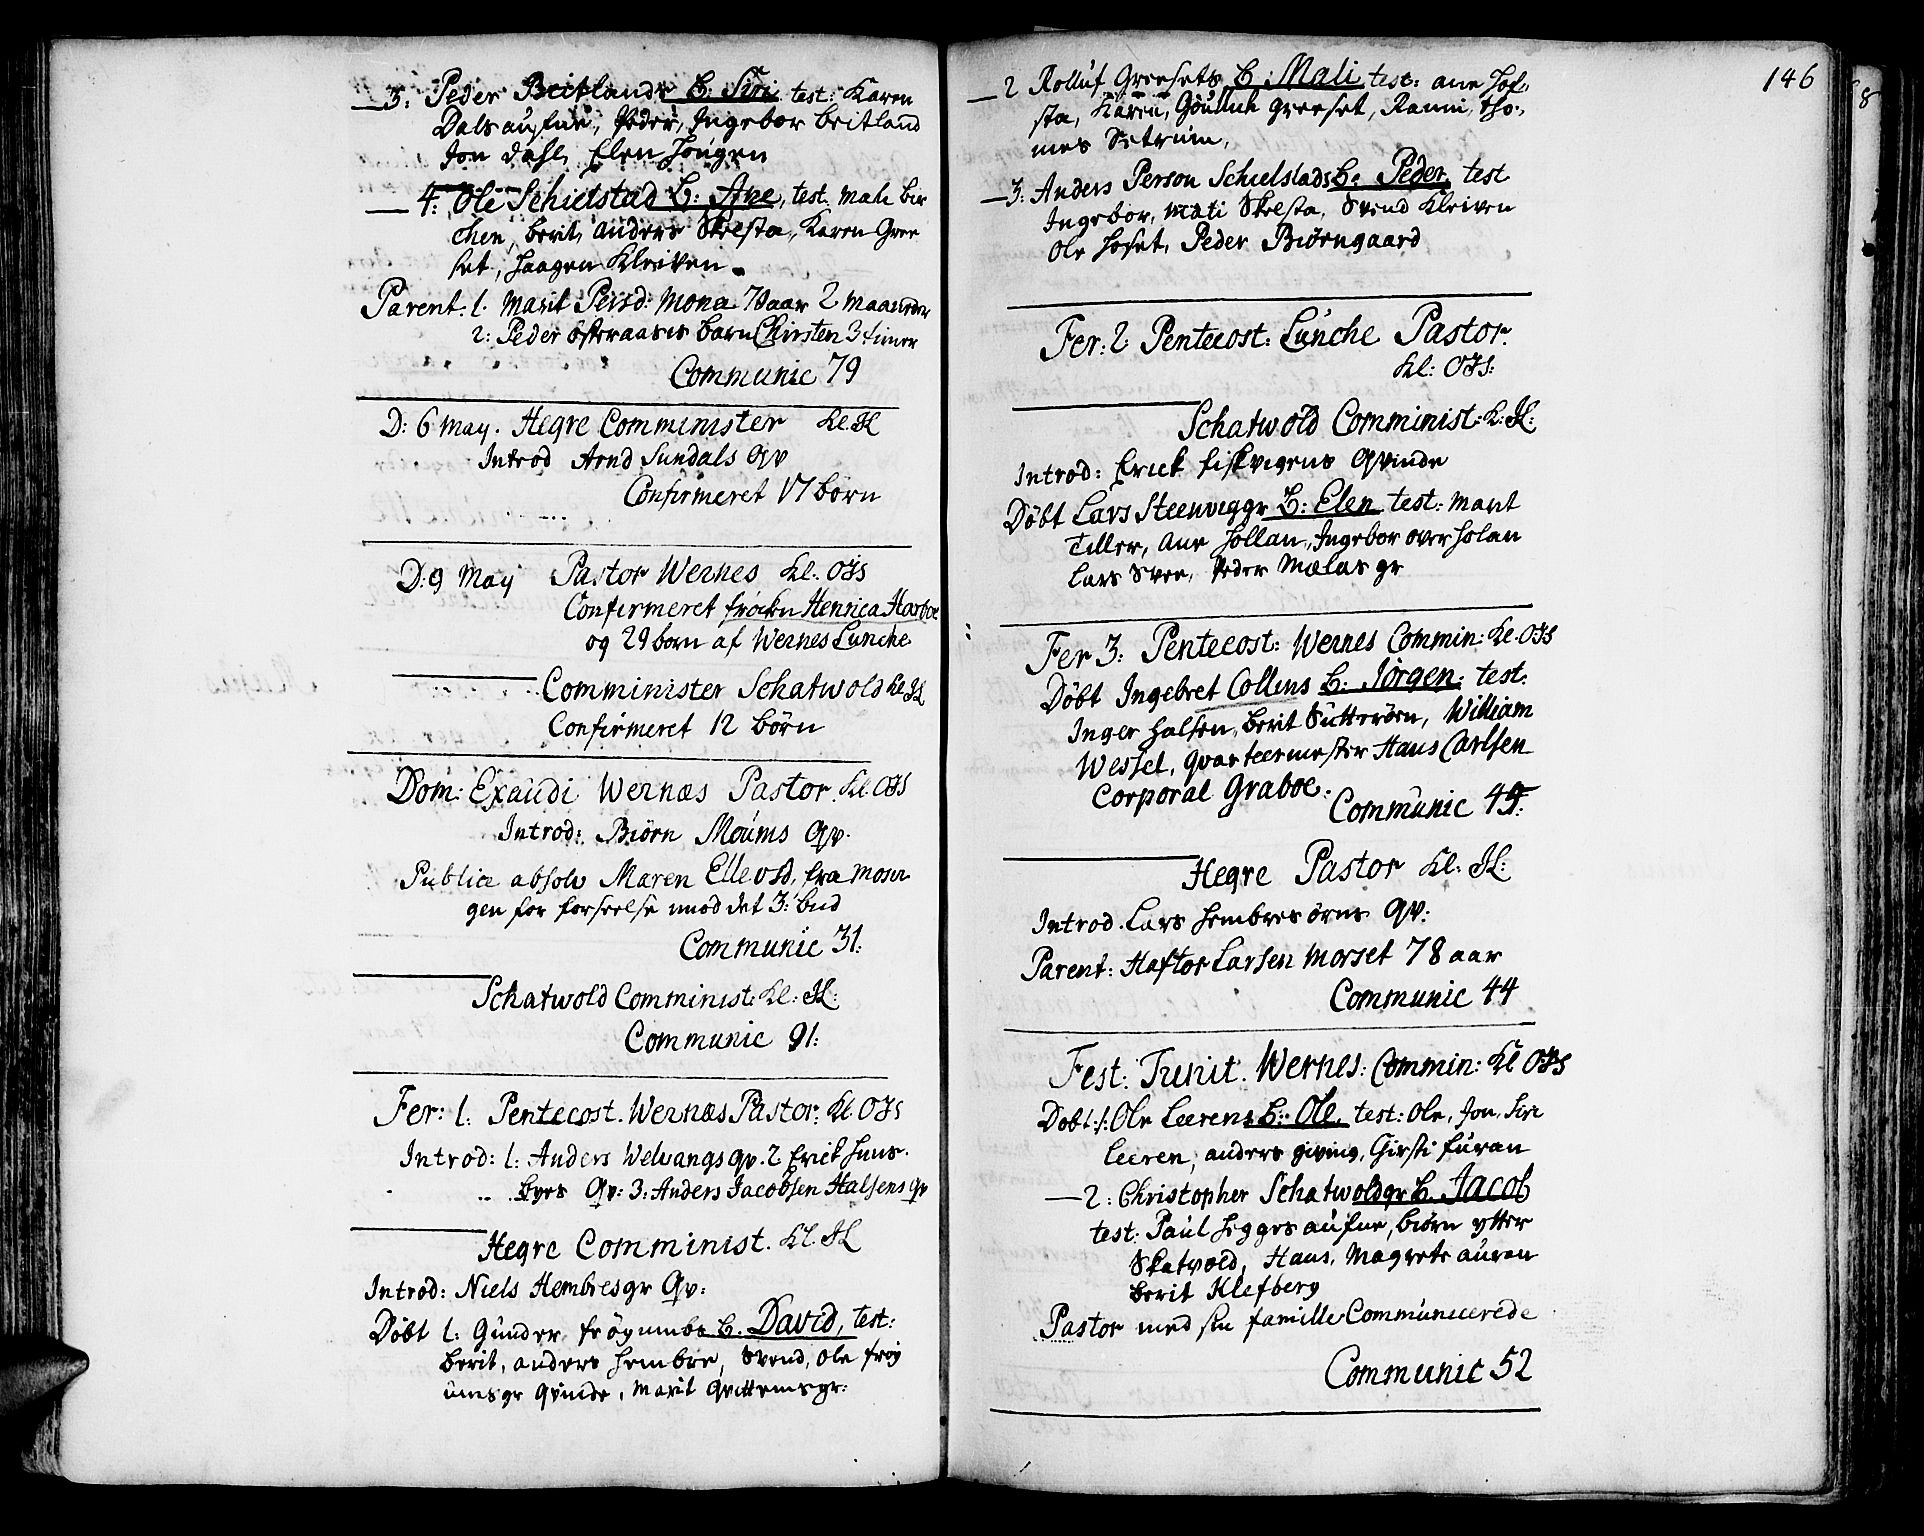 — 3: Peder Breitlands B: Siri test: Karen
Dalsaufne, Peder, Ingebor breitland
Jon dahl, Elen Hougen
— 4: Ole Schielstad B: Ane, test. mali bir
chen, berit, anders Skelsta, Karen Gree
set, haagen Kleiven.
Parent. 1. Marit Peersd: Mona 70 aar 2 maaneder
2: Peder østeraases barn Chirsten 3 timer
Communic 79
D: 6 may. Hegre Comminister Kl. JL
Introd Arnd Sundals Qv
Confirmeret 17 børn
D: 9 May Pastor Wernes Kl. OJS
Confirmeret frøcken Henrica Harboe
og 29 børn af Wernes Lunche
Comminister Schatwold Kl JL
Confirmeret 12 børn
Dom: Exaudi Wernæs Pastor. Kl OJS
Introd: Biørn Moums Qv.
Publice absolv Maren Ellevsd, fra moxn
gen for forseelse mod det 3: bud
Communic 31:
Schatwold Comminist: Kl: JL:
Communic 91:
Fer: 1. Pentecost. Wernæs Pastor: Kl OJS
Introd: 1: Anders Welvangs qv. 2 Erick huus.
byes Qv: 3: Anders Jacobsen Halsens Qv
Hegre Comminist. Kl. JL
Introd: Niels Hembresgr Qv:
Døbt 1: Gunder frøgnumbs B. David, test:
berit, anders hembre, Svend, ole frøy
umsgr Qvinde, Marit Qvittemsgr:
146
— 2 Rolluf Greesets B: Mali test: ane Hof
sta, Karen, Gøuluk Greeset, Ranni, tho:
mes Setrum,
— 3: Anders Person Schielstads B: Peder, test
Ingebor, Mali Skelsta, Svend Kleiven
ole hoset, Peder Biørngaard
Fer: 2. Pentecost: Lunche Pastor.
Kl: OJS:
Schatwold Comminist: K: JL:
Introd: Erick fiskvigens Qvinde
Døbt Lars Steenviggr B: Elen test: marit
Tiller, ane hollan, Ingebor over holan
Lars Svee, Peder Mælasgr
Fer 3: Pentecost: Wernes Commin: Kl. OJS
Døbt Ingebret Collins B: Jörgen: test:
Inger halsen, berit Sutterøen, William
Wessel, Qvarteermester Hans Carlsen
Corporal Graboe.
Communic 49:
Hegre Pastor Kl. JL:
Introd. Lars hembres ørns Qv:
Parent: Haftor Larsen morset 78 aar
Communic 44
Fest: Trinit. Wernes: Commin: Kl OJS
Døbt: 1: Ole Leerens B: Ole, test: Ole, Jon, Siri
Leeren, anders giving, Girsti furan
— 2: Christopher Schatwoldgr B. Jacob
test: Paul heggesaufne, biørn ytter
Skatvold, Hans, Magrete auran
berit Klefberg
Pastor med sin famille Communicerede
Communic 52